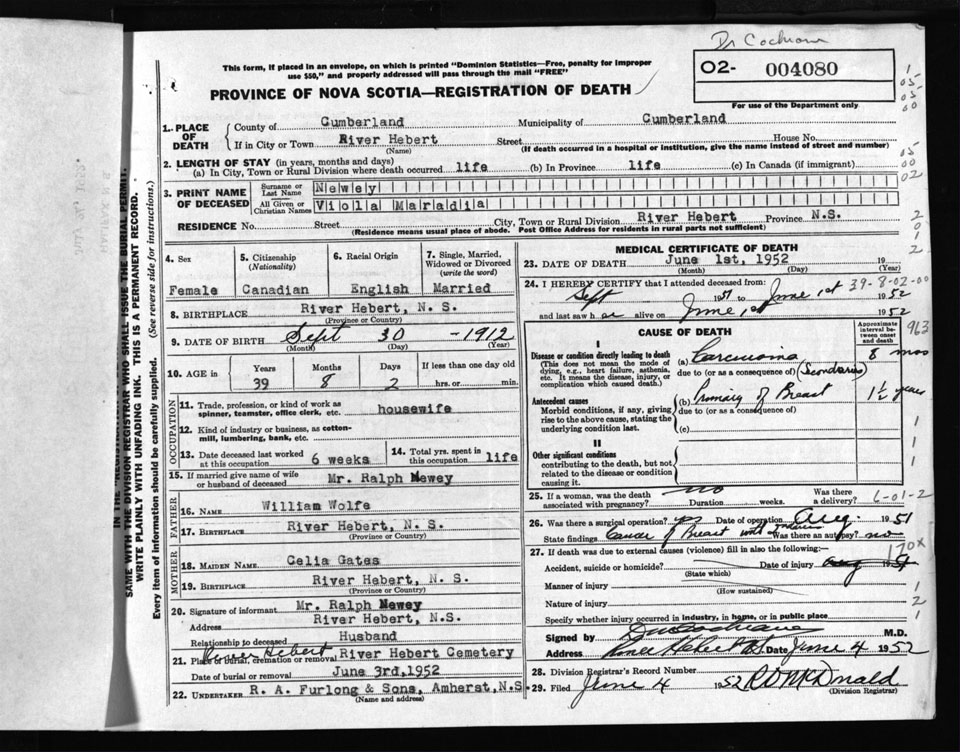 Dr Cochrane
This form, if placed in an envelope, on which is printed "Dominion Statistics—Free, penalty for improper
use $50," and properly addressed will pass through the mail "FREE"
PROVINCE OF NOVA SCOTIA—REGISTRATION OF DEATH
02- 004080
For use of the Department only
1. PLACE OF DEATH
County of Cumberland Municipality of Cumberland
If in City or Town River Hebert Street House No.
(Name) (If death occurred in a hospital or institution, give the name instead of street and number)
2. LENGTH OF STAY (in years, months and days)
(a) In City, Town or Rural Division where death occurred life (b) In Province life (c) In Canada (if immigrant)
3. PRINT NAME OF DECEASED
Surname or Last Name Newey
All Given or Christian Names Viola Maradia
RESIDENCE No. Street City, Town or Rural Division River Hebert Province N.S.
(Residence means usual place of abode. Post Office Address for residents in rural parts not sufficient)
4. Sex
Female
5. Citizenship (Nationality)
Canadian
6. Racial Origin
English
7. Single, Married, Widowed or Divorced (write the word)
Married
8. BIRTHPLACE River Hebert, N. S.
(Province or Country)
9. DATE OF BIRTH Sept 30 -1912
(Month) (Day) (Year)
10. AGE in Years Months Days If less than one day old
39 8 2 hrs. or min.
OCCUPATION
11. Trade, profession, or kind of work as
spinner, teamster, office clerk, etc. housewife
12. Kind of industry or business, as cotton-
mill, lumbering, bank, etc.
13. Date deceased last worked at this occupation 6 weeks
14. Total yrs. spent in this occupation life
15. If married give name of wife
or husband of deceased Mr. Ralph Newey
FATHER
16. NAME William Wolfe
17. BIRTHPLACE River Hebert, N. S.
(Province or Country)
MOTHER
18. MAIDEN NAME Celia Gates
19. BIRTHPLACE River Hebert, N. S.
(Province or Country)
20. Signature of informant Mr. Ralph Newey
Address River Hebert, N.S.
Relationship to deceased Husband
River Hebert
21. Place of burial, cremation or removal River Hebert Cemetery
Date of burial or removal June 3rd, 1952
22. UNDERTAKER R. A. Furlong & Sons, Amherst, N.S.
(Name and address)
MEDICAL CERTIFICATE OF DEATH
23. DATE OF DEATH June 1st, 1952 19
(Month) (Day) (Year)
24. I HEREBY CERTIFY that I attended deceased from: 39-8-02-00
Sept 1951 to June 1st 1952
and last saw h er alive on June 1st 1952
CAUSE OF DEATH
Approximate interval between onset and death
963
I
Disease or condition directly leading to death
(This does not mean the mode of dying, e.g., heart failure, asthenia, etc. It means the disease, injury, or complication which caused death.)
(a) Carcinoma 8 mos
due to (or as a consequence of) (Secondaries)
Antecedent causes
Morbid conditions, if any, giving rise to the above cause, stating the underlying condition last.
(b) Primary of Breast 1½ years
due to (or as a consequence of)
(c)
II
Other significant conditions
contributing to the death, but not related to the disease or condition causing it.
25. If a woman, was the death associated with pregnancy? no Duration weeks. Was there a delivery? 6-01-2
26. Was there a surgical operation? yes Date of operation Aug. 1951
State findings Cancer of Breast with Was there an autopsy? no
27. If death was due to external causes (violence) fill in also the following:— 170x
Accident, suicide or homicide? Date of injury Aug 1951
(State which)
Manner of injury
(How sustained)
Nature of injury
Specify whether injury occurred in industry, in home, or in public place
Signed by Cochrane M.D.
Address River Hebert NS Date June 4 1952
28. Division Registrar's Record Number
29. Filed June 4 1952 R D McDonald
(Division Registrar)
SAME WITH THE DIVISION REGISTRAR WHO SHALL ISSUE THE BURIAL PERMIT.
WRITE PLAINLY WITH UNFADING INK. THIS IS A PERMANENT RECORD.
Every item of information should be carefully supplied. (See reverse side for instructions.)